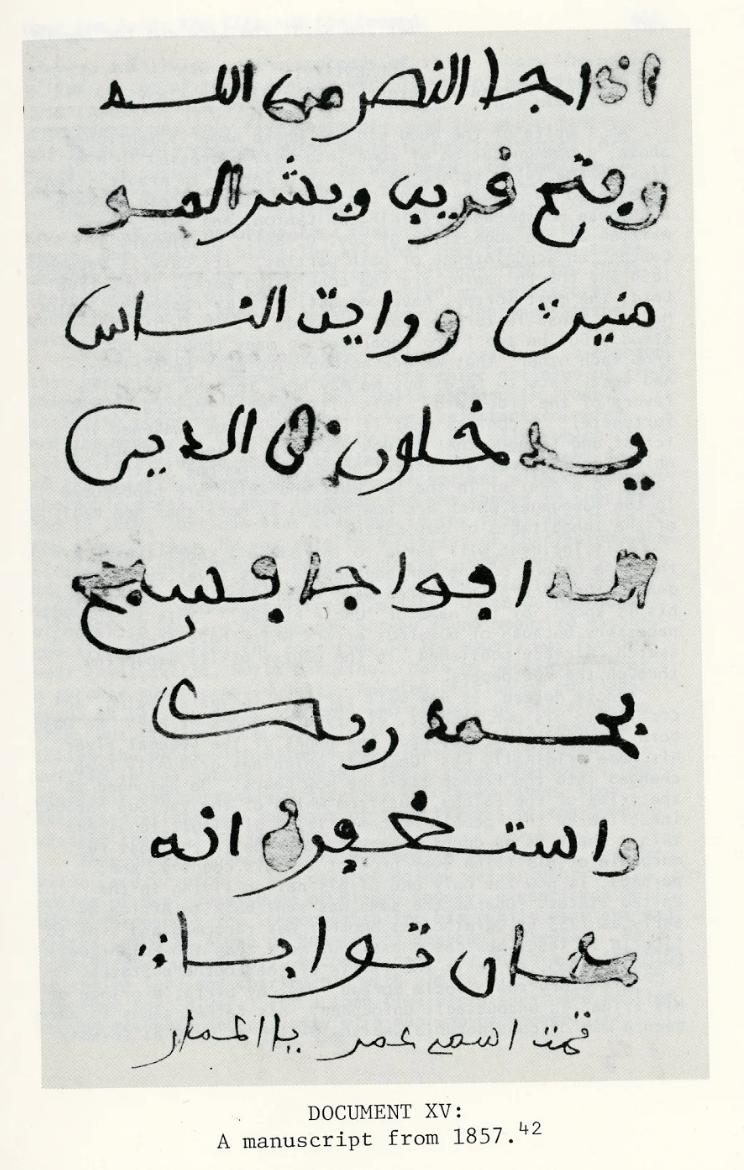 اذا جا النصر من الله
وفتح قريب وبشر المو
منين ورايت الناس
يدخلون في الدين
الله افواجا فسبح
بحمد ربك
واستغفره انه
كان توابا
تمت اسمي عمر
DOCUMENT XV:
A manuscript from 1857.42